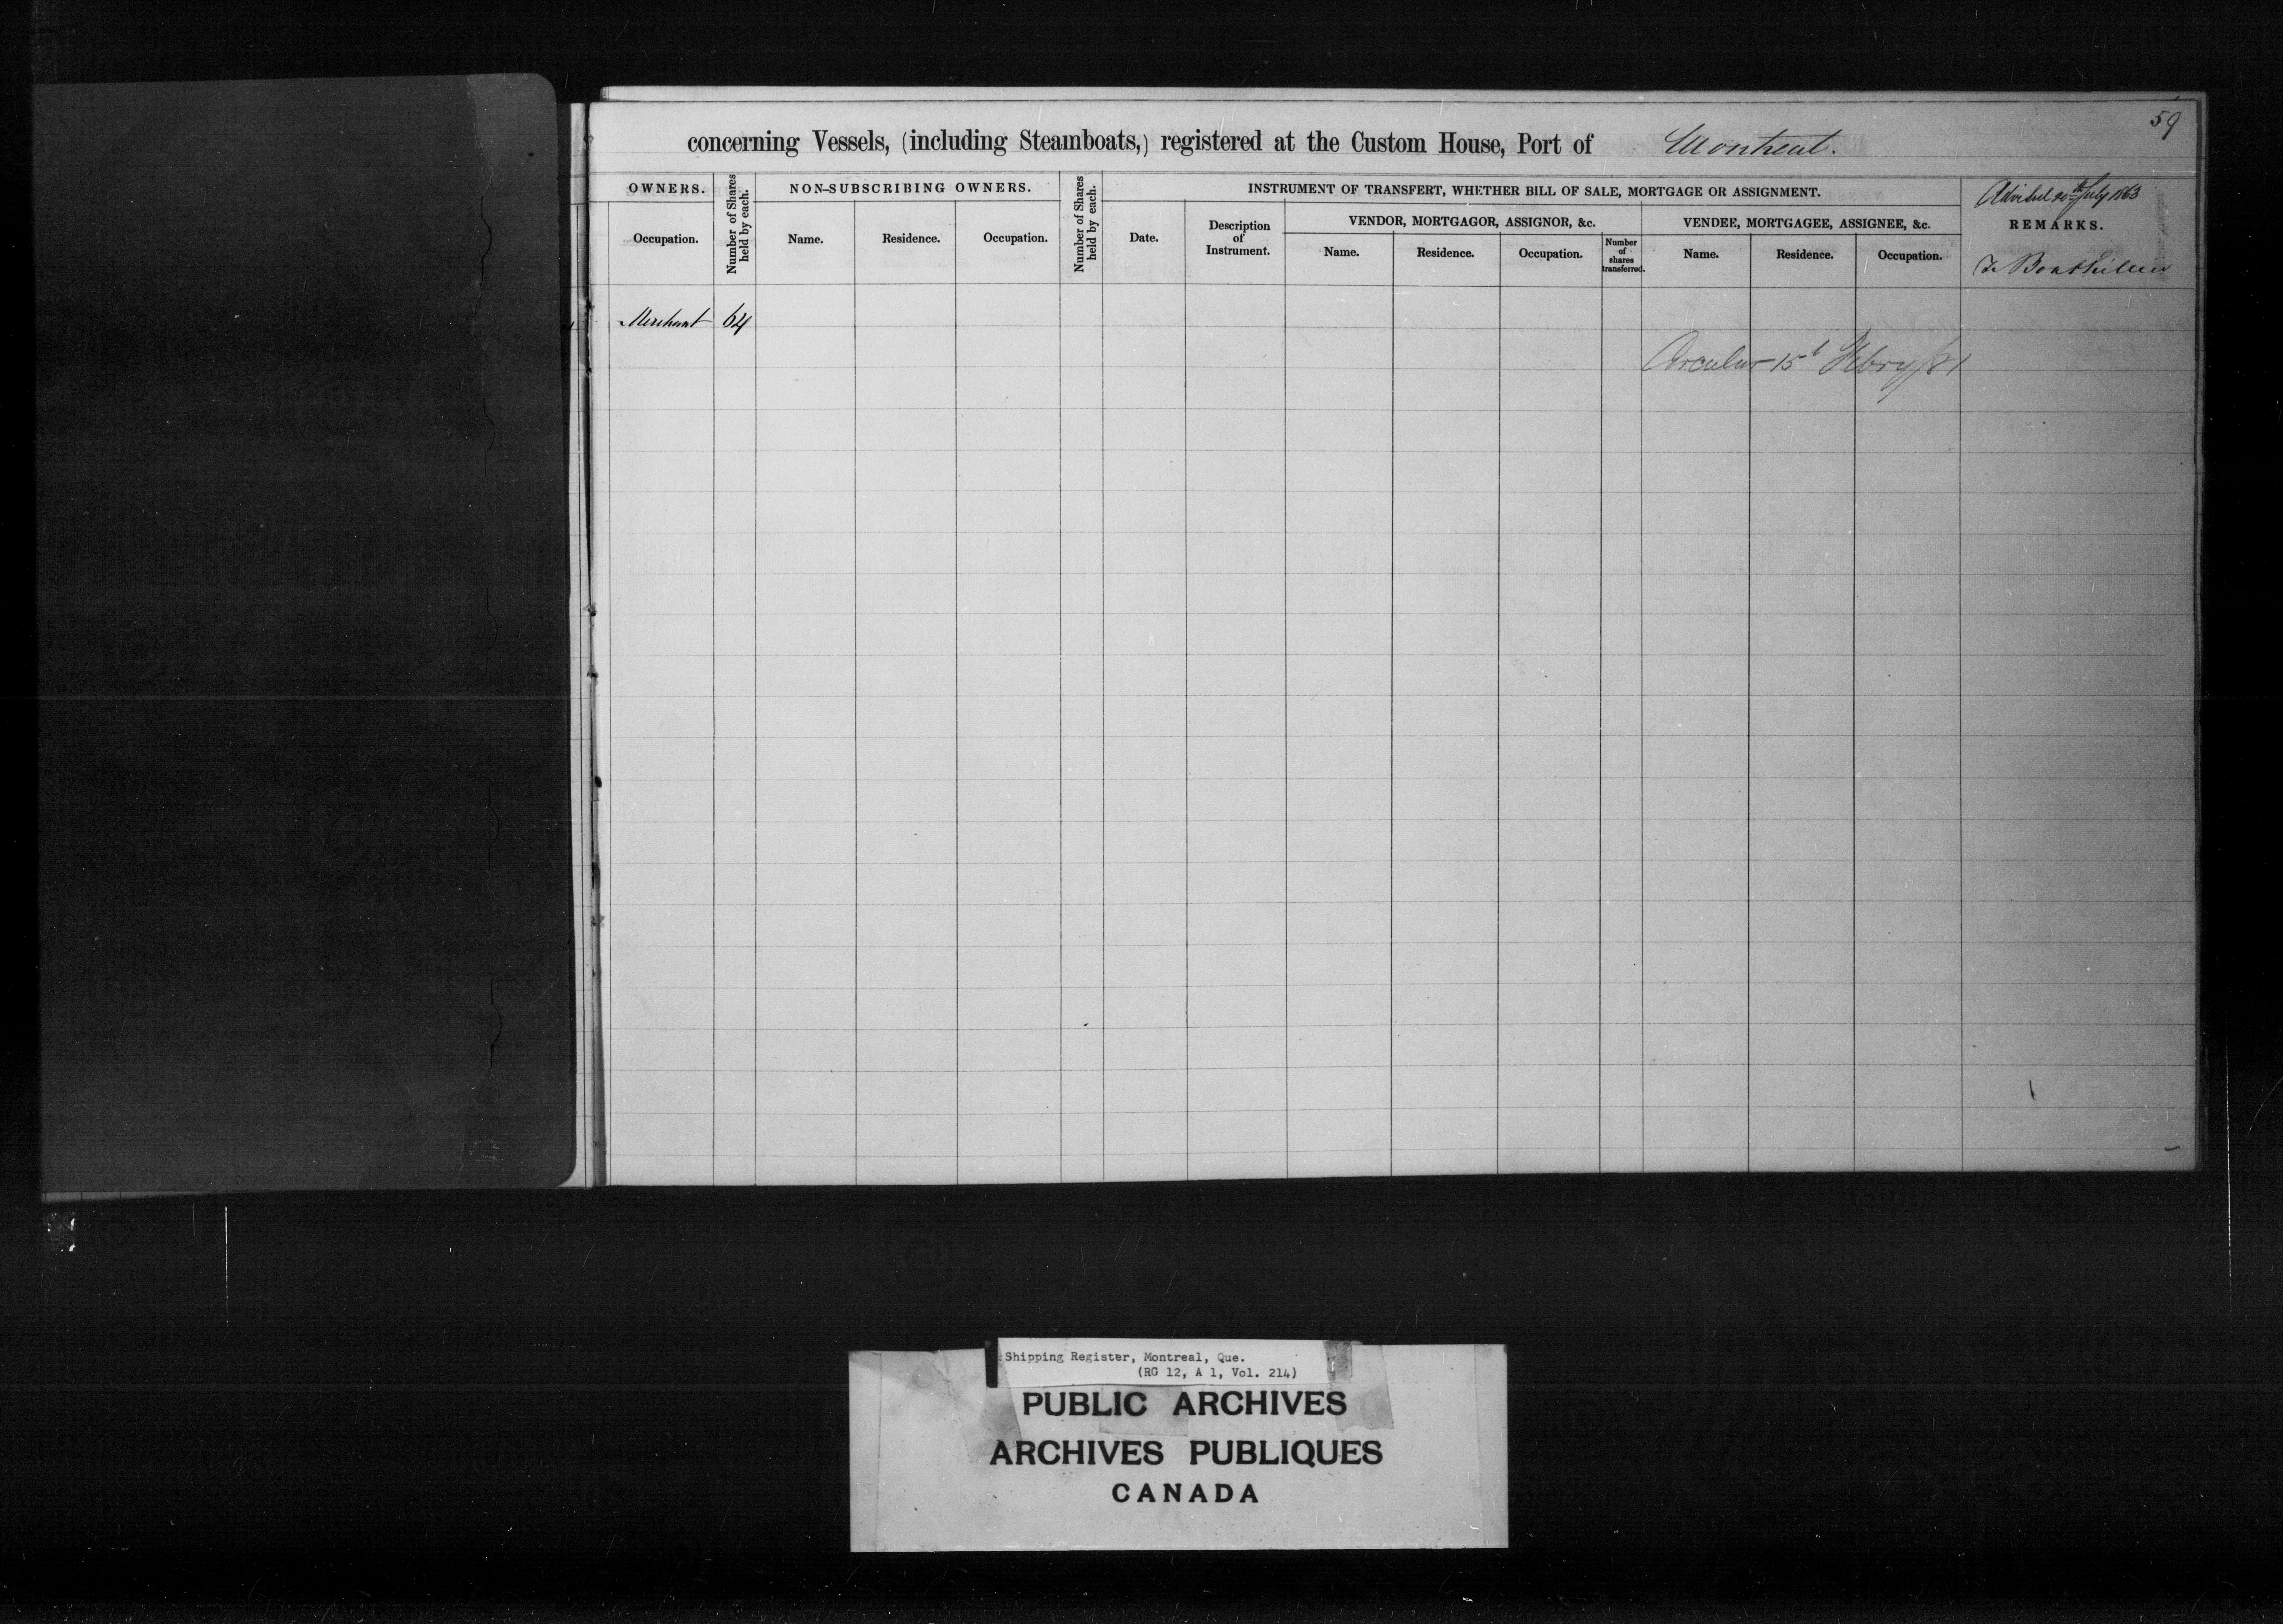 59
concerning Vessels, (including Steamboats,) registered at the Custom House, Port of Montreal.
OWNERS.
Number of Shares held by each.
NON-SUBSCRIBING OWNERS.
Number of Shares held by each.
INSTRUMENT OF TRANSFERT, WHETHER BILL OF SALE, MORTGAGE OR ASSIGNMENT.
20th July 1863
REMARKS.
VENDOR, MORTGAGOR, ASSIGNOR, &c.
VENDEE, MORTGAGEE, ASSIGNEE, &c.
Occupation.
Name.
Residence.
Occupation.
Date.
Description of Instrument.
Name.
Residence.
Occupation.
Number of shares transferred.
Name.
Residence.
Occupation.
Merchant 64
Circular 15t Febry/81
Shipping Register, Montreal, Que.
(RG 12, A 1, Vol. 214)
PUBLIC ARCHIVES
ARCHIVES PUBLIQUES
CANADA